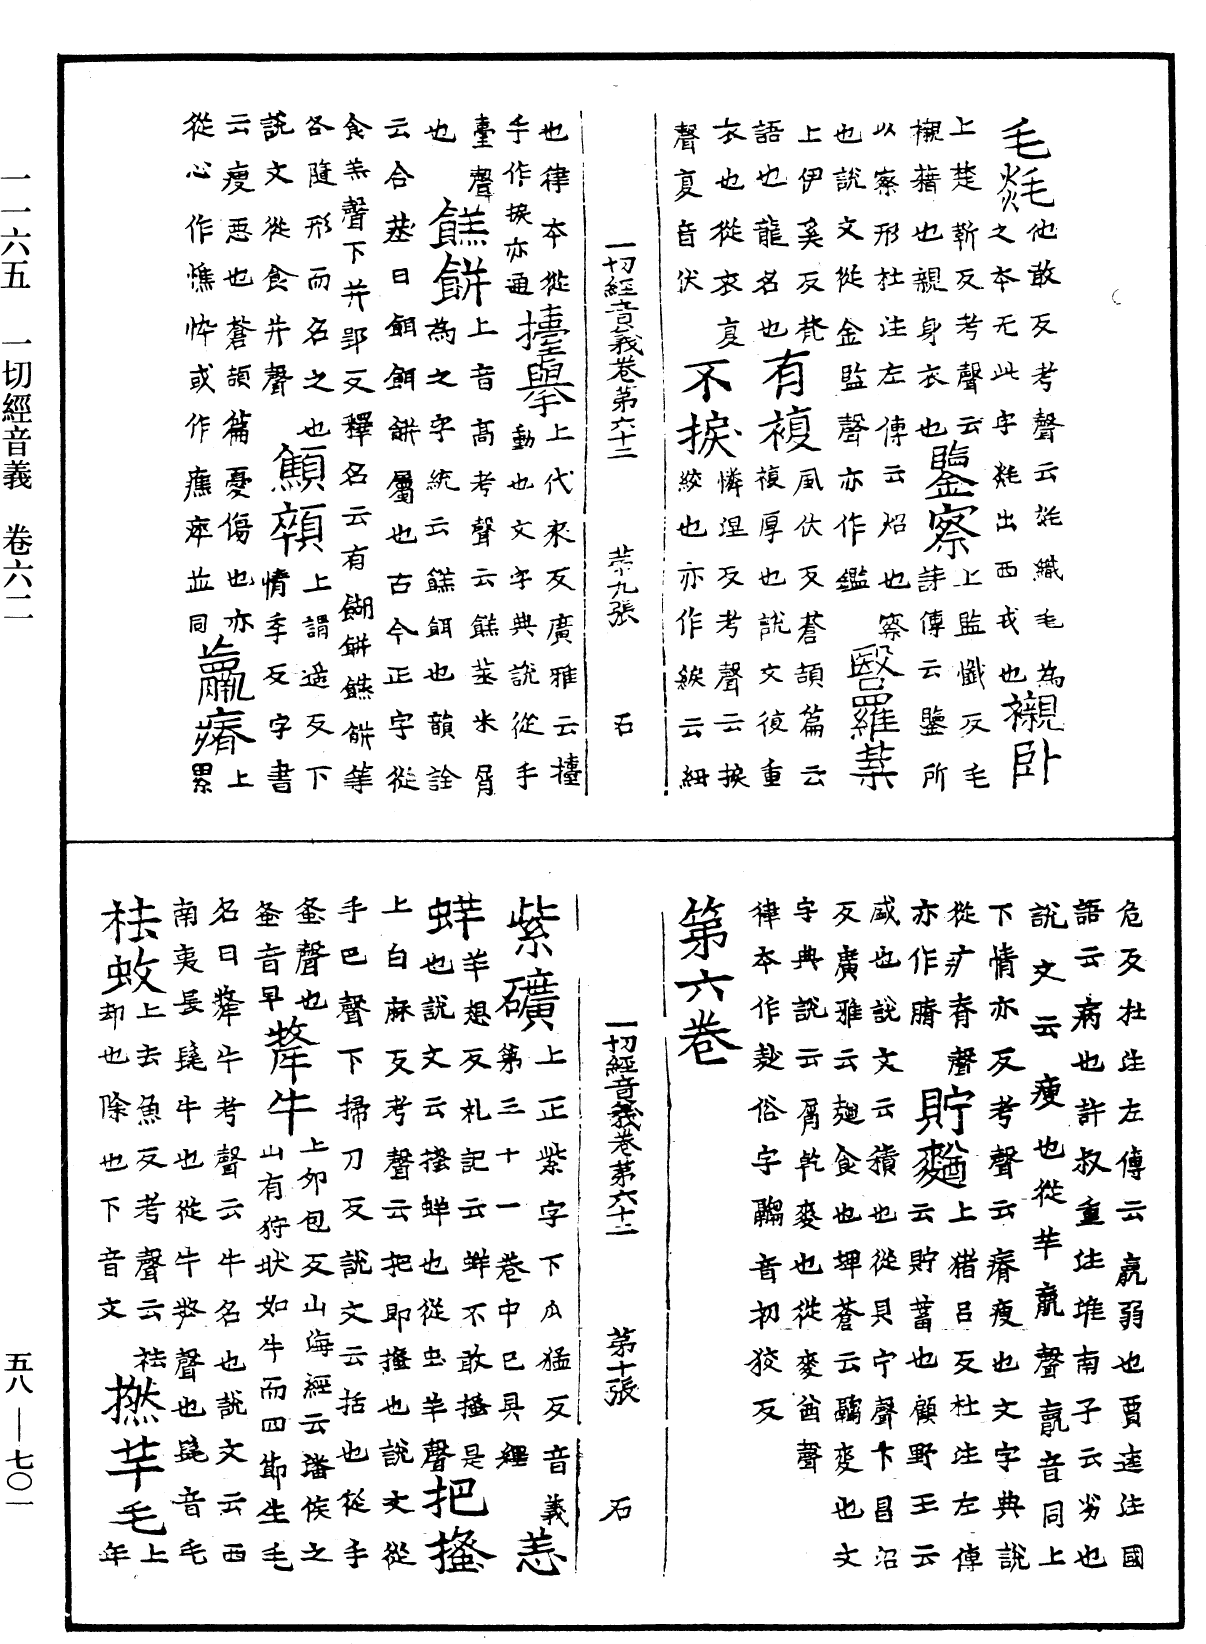 毛毯他敢反考聲云毯織毛為
之本无此字毯出西戎也襯卧
上楚靳反考聲云
襯藉也親身衣也鑒察上監懺反毛
詩傳云鑒所
以察形杜注左傳云炤也察
也說文從金監聲亦作鑑翳羅葉
上伊奚反梵
語也龍名也有複風伏反蒼頡篇云
複厚也說文複重
衣也從衣复
聲复音伏不捩憐涅反考聲云捩
絞也亦作綟云紐
一切經音義卷第六十二　第九張　石
也律本從
手作捩亦通擡舉上代來反廣雅云擡
動也文字典說從手
臺聲
也餻餅上音高考聲云餻蒸米屑
為之字統云餻餌也韻詮
云合蒸曰餌餌餅屬也古今正字從
食羔聲下并郢反釋名云有餬餅䭜餅等
各隨形而名之也
說文從食并聲顦顇上謂遥反下
情季反字書
云瘦惡也蒼頡篇憂傷也亦
從心作憔悴或作癄瘁並同羸瘠上
累
危反杜注左傳云羸弱也賈逵注國
語云病也許叔重注淮南子云劣也
說文云瘦也從羊𣎆聲𣎆音同上
下情亦反考聲云瘠瘦也文字典說
從疒脊聲
亦作膌貯麨上猪吕反杜注左傳
云貯蓄也顧野王云
咸也說文云積也從貝宁聲下昌沼
反廣雅云麨食也埤蒼云䵂麥也文
字典說云屑乾麥也從麥酋聲
律本作麨俗字䵂音初狡反
第六卷
一切經音義卷第六十二　第十張　石
紫礦上正紫字下瓜猛反音義
第三十一卷中已具經恙
蛘羊想反礼記云蛘不敢搔是
也說文云搔蛘也從虫羊聲把搔
上白麻反考聲云把即搔也說文從
手巴聲下掃刀反說文云括也從手
蚤聲也
蚤音早犛牛上卯包反山海經云潘侯之
山有狩狀如牛而四節生毛
名曰犛牛考聲云牛名也說文云西
南夷長髦牛也從牛𠩺聲也髦音毛
袪蚊上去魚反考聲云袪
却也除也下音文撚芉毛上
年
一一六五　一切經音義　卷六二
五八—七〇一